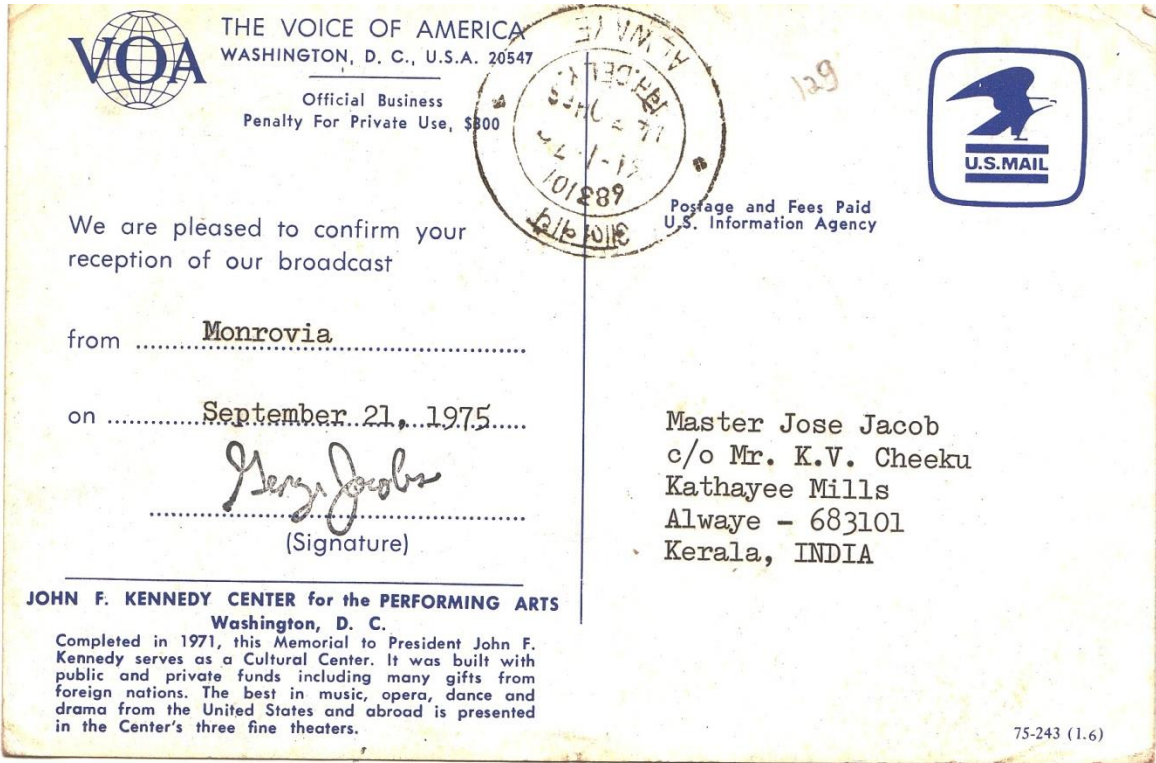 VOA
THE VOICE OF AMERICA
WASHINGTON, D. C., U.S.A. 20547
Official Business
Penalty For Private Use, $300
ALWAYE
683101
129
U.S.MAIL
Postage and Fees Paid
U.S. Information Agency
We are pleased to confirm your
reception of our broadcast
from Monrovia
on September 21, 1975
George Jacobs
(Signature)
Master Jose Jacob
c/o Mr. K.V. Cheeku
Kathayee Mills
Alwaye - 683101
Kerala, INDIA
JOHN F. KENNEDY CENTER for the PERFORMING ARTS
Washington, D. C.
Completed in 1971, this Memorial to President John F.
Kennedy serves as a Cultural Center. It was built with
public and private funds including many gifts from
foreign nations. The best in music, opera, dance and
drama from the United States and abroad is presented
in the Center's three fine theaters.
75-243 (1.6)